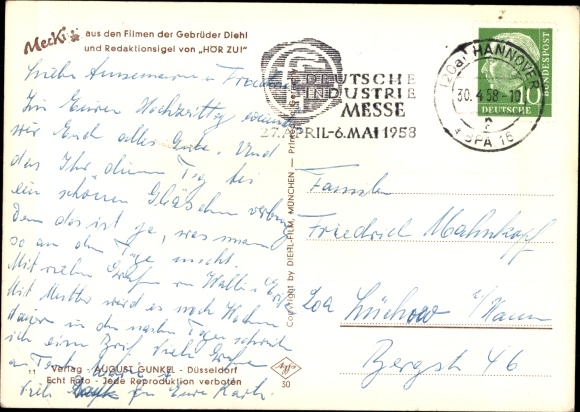 Mecki
aus den Filmen der Gebrüder Diehl
und Redaktionsigel von „HÖR ZU!“
DEUTSCHE
INDUSTRIE
MESSE
27. APRIL-6. MAI 1958
(20a) HANNOVER
30.4.58-10
BPA 15
10
DEUTSCHE
BUNDESPOST
Liebe Annemarie u. Friedrich
Zu Eurem Hochzeitstag wünschen
wir Euch alles Gute. Und
das Ihr diesen Tag bei
ein schönen Gläschen
denn das ist ja, was man
so an dem Tage macht.
Mit vielen Grüßen
Mit Mutter wird es noch
in den nächsten Tagen schreib
ich ein Brief. Viele Grüße
an
Viele Eure
Familie
Friedrich Mahnkopf
20a Lüchow / Hann
Bergstr 46
Copyright by DIEHL-FILM, MÜNCHEN — Printed
11 Verlag AUGUST GUNKEL - Düsseldorf
Echt Foto - Jede Reproduktion verboten
Agfa
30